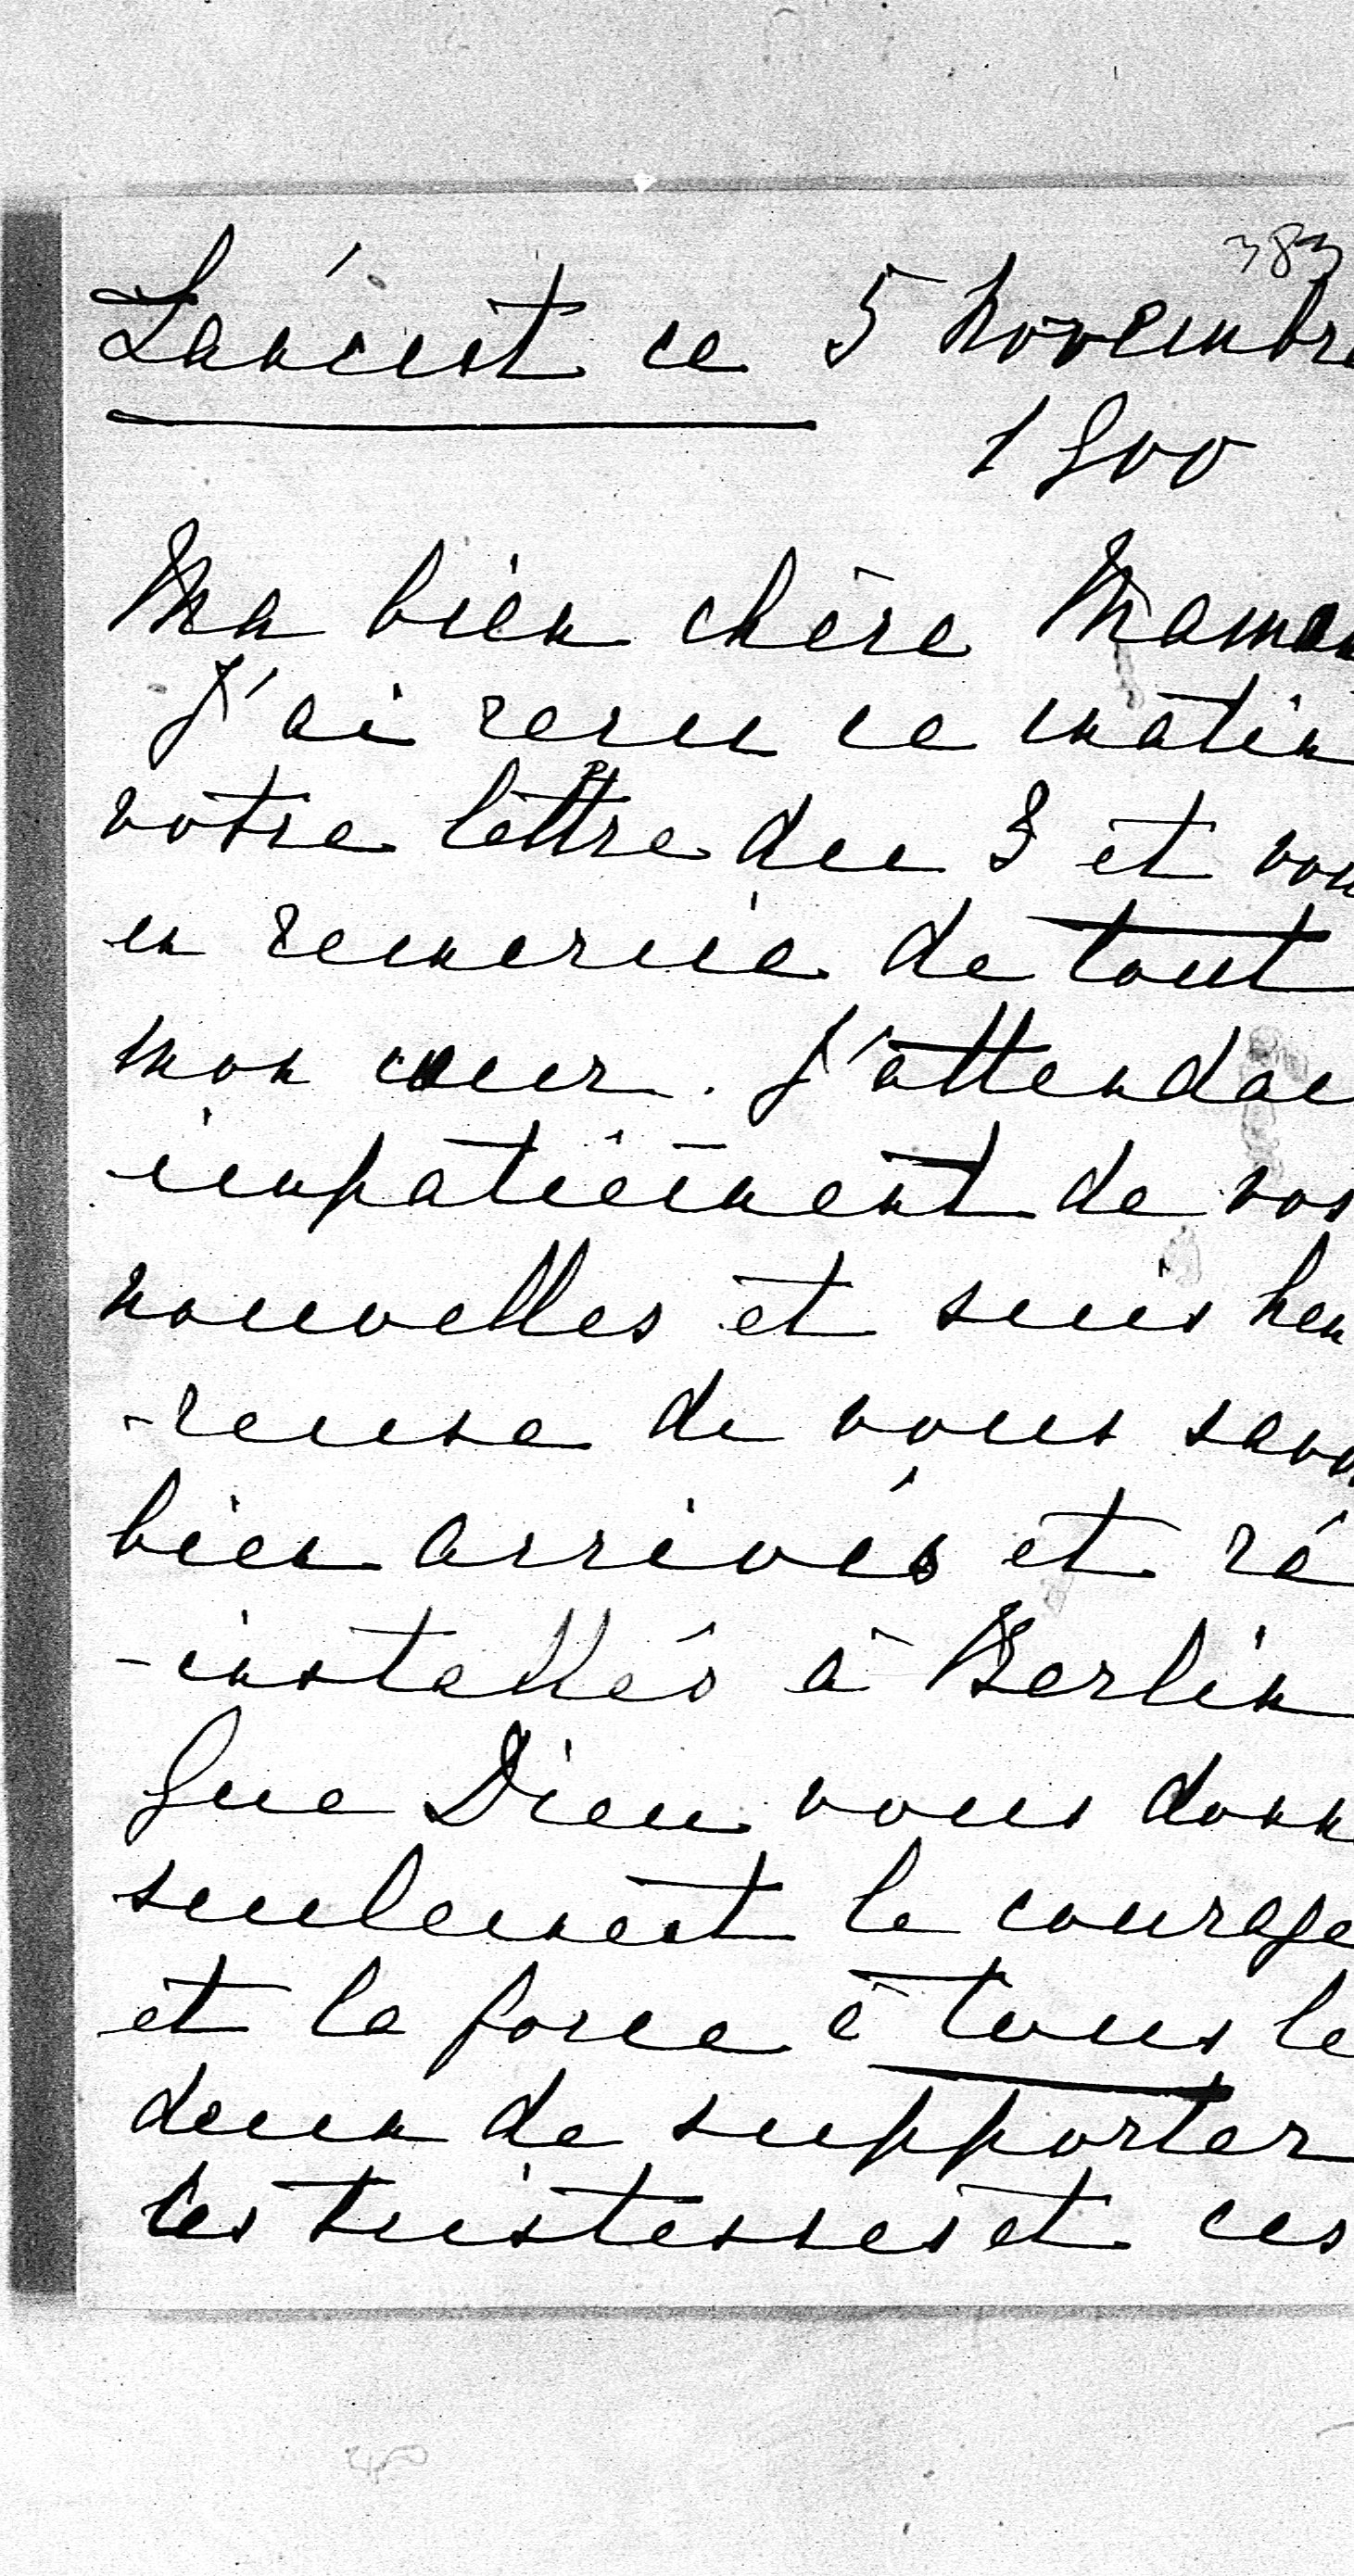 383
Lancut ce 5 Novembre
1900
Ma bien chère Maman
J'ai recu ce matin
votre lettre du 3 et vou
en remercie de tout
mon cœur. J'attendai
impatiemment de vos
nouvelles et suis heu
-reuse de vous savoi
bien arrivés et ré
-installés à Berlin
Que Dieu vous donn
seulement le courage
et la force à tous le
deux de supporter
les tristesses et ces